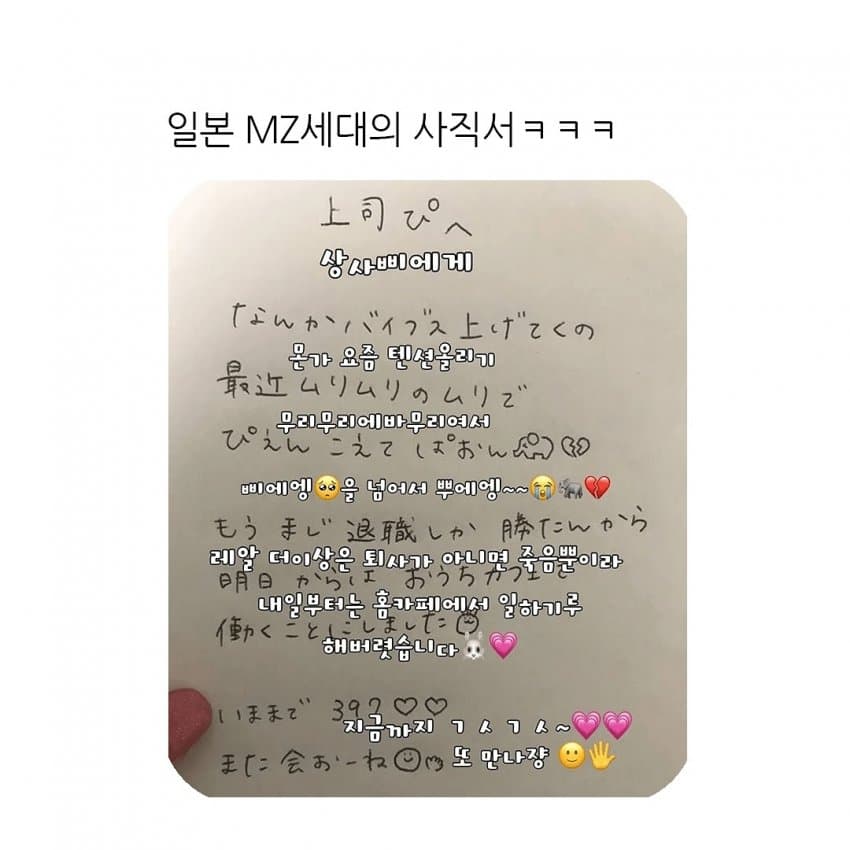 일본 MZ세대의 사직서ㅋㅋㅋ
上司ぴへ
상사삐에게
なんかバイブス上げてくの
몬가 요즘 텐션올리기
最近ムリムリのムリで
무리무리에바무리여서
ぴえん こえて ぱおん
삐에엥🥺을 넘어서 뿌에엥~~😭🐘💔
もう まじ 退職しか 勝たんから
레알 더이상은 퇴사가 아니면 죽음뿐이라
明日 からは おうちカフェで
내일부터는 홈카페에서 일하기루
働くことにしました
해버렷습니다🐰💗
いままで 397♡♡
지금까지 ㄱㅅㄱㅅ~💗💗
また会おーね 또 만나쟝 🙂🖐